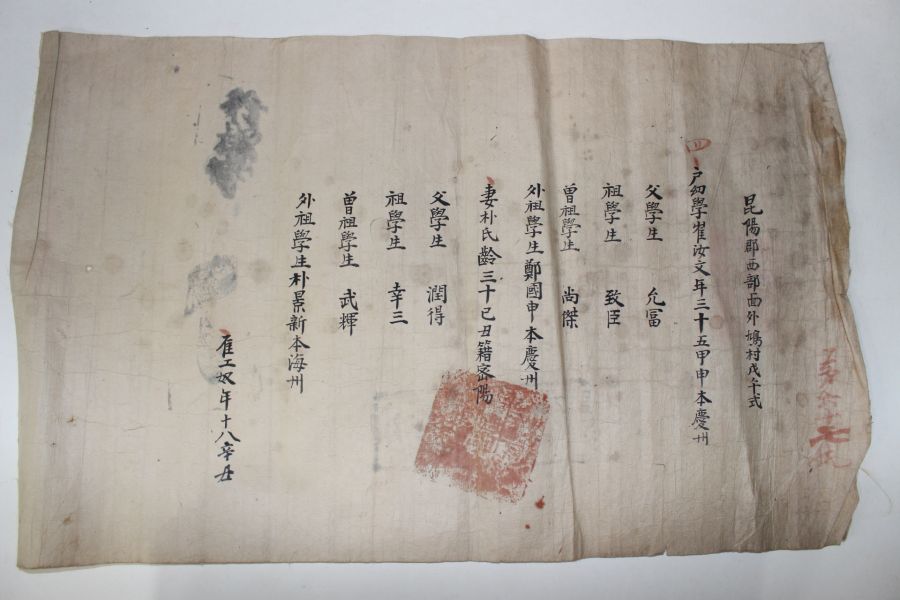 昆陽郡西部面外鳩村戊午式
四
戶幼學崔汝文年三十五甲申本慶州
父學生 允富
祖學生 致臣
曾祖學生 尚傑
外祖學生鄭國申本慶州
妻朴氏齡三十己丑籍密陽
父學生 潤得
祖學生 幸三
曾祖學生 武輝
外祖學生朴景新本海州
雇工奴年十八辛丑